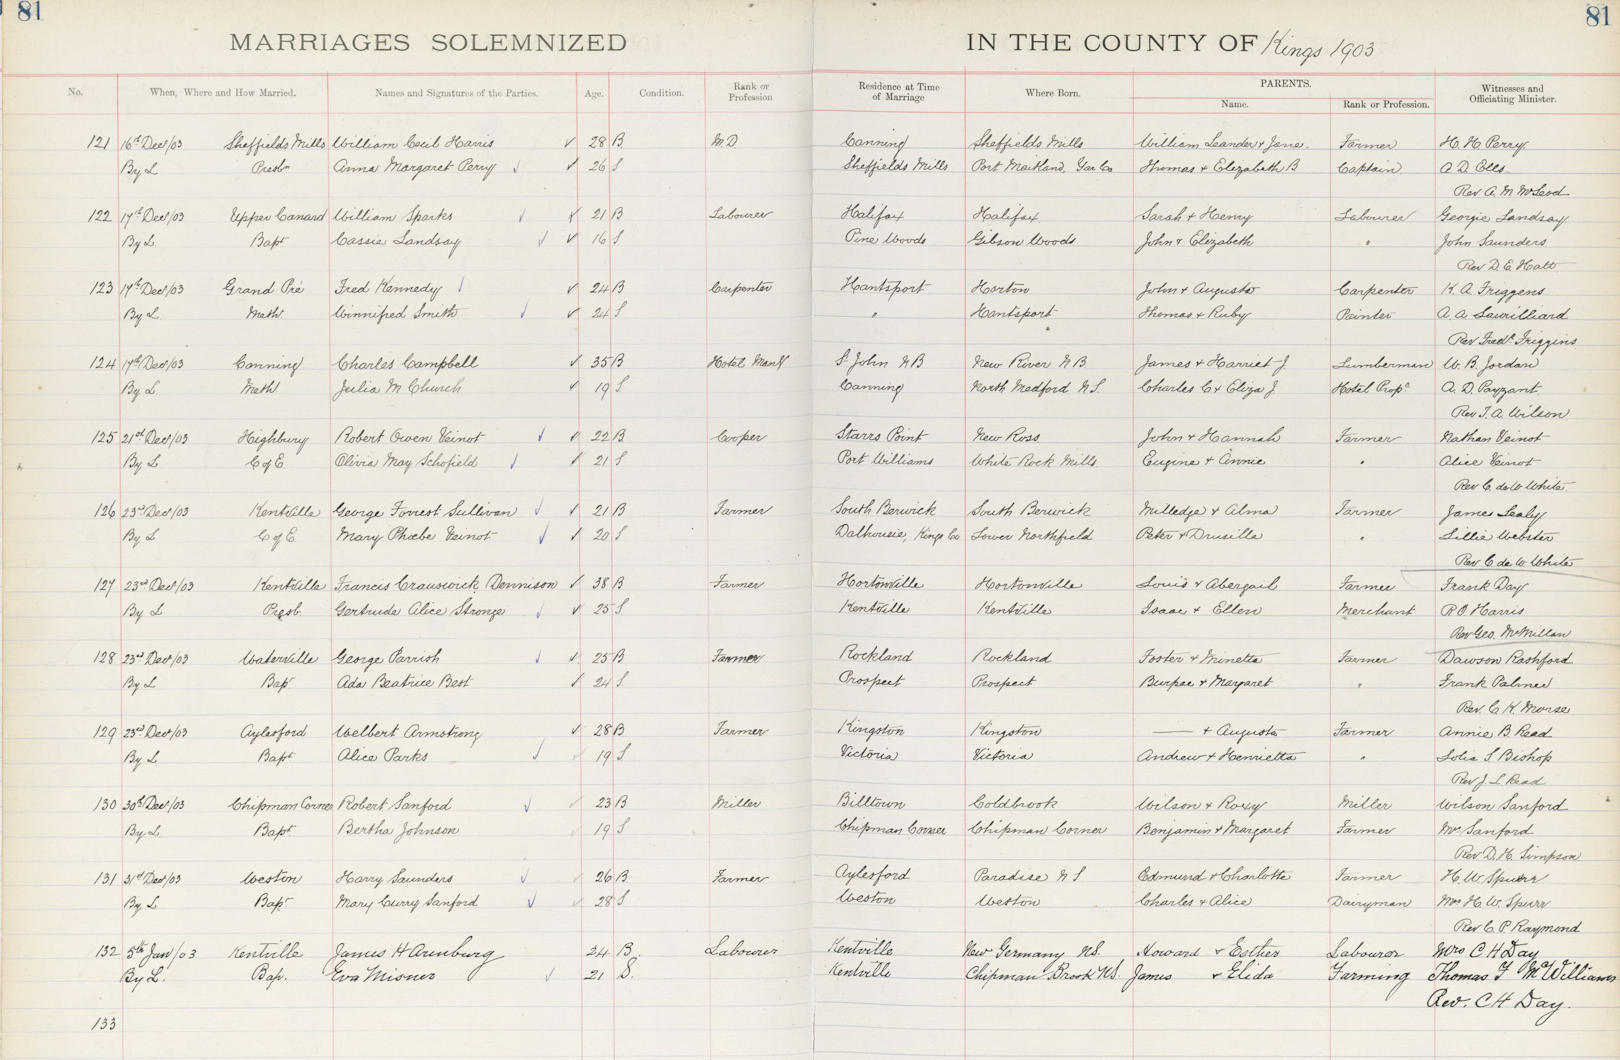 81 81
MARRIAGES SOLEMNIZED IN THE COUNTY OF Kings 1903
No. When, Where and How Married. Names and Signatures of the Parties. Age. Condition. Rank or Profession Residence at Time of Marriage Where Born. PARENTS. Name. Rank or Profession. Witnesses and Officiating Minister.
121 16th Decr/03 Sheffields Mills William Cecil Harris 28 B M.D Canning Sheffields Mills William Leander & Jane. Farmer H. H. Perry
By L Presbn Anna Margaret Perry 26 S Sheffields Mills Port Maitland, Yar Co Thomas & Elizabeth B Captain A. D. Ells
Rev A. M. McLeod
122 17th Decr/03 Upper Canard William Sparks 21 B Labourer Halifax Halifax Sarah & Henry Labourer Georgie Landsay
By L Bapt Cassie Landsay 16 S Pine Woods Gibson Woods John & Elizabeth " John Saunders
Rev D. E. Hatt
123 17th Decr/03 Grand Pré Fred Kennedy 24 B Carpenter Hantsport Horton John & Augusta Carpenter K. A. Friggens
By L Meth Winnifred Smith 24 S " Hantsport Thomas & Ruby Painter A. A.
Rev Fredk Friggins
124 17th Decr/03 Canning Charles Campbell 35 B Hotel St. John N B New River N.B. James & Harriet J Lumberman W. B. Jordan
By L. Meth Julia M Church 19 S Canning North Medford N.S. Charles C & Eliza J. Hotel Propr A. D. Payzant
Rev J. A. Wilson
125 21st Decr/03 Highbury Robert Owen Veinot 22 B Cooper Starrs Point New Ross John & Hannah Farmer Nathan Veinot
By L C of E. Olivia May Schofield 21 S Port Williams White Rock Mills Eugine & Annie " Alice Veinot
Rev C. de W White
126 23rd Decr/03 Kentville George Forrest Sullivan 21 B Farmer South Berwick South Berwick Milledge & Alma Farmer James Sealy
By L C of E. Mary Phœbe Veinot 20 S Dalhousie, Kings Co Lower Northfield Peter & Drusilla " Lillie Webster
Rev C de W White
127 23rd Decr/03 Kentville Francis Crauswick Dennison 38 B Farmer Hortonville Hortonville Louis & Abergail Farmer Frank Day
By L Presb. Gertrude Alice Stronge 25 S Kentville Kentville Isaac & Ellen Merchant R. O. Harris
Rev Geo. McMillan
128 23rd Decr/03 Waterville George Parrish 25 B Farmer Rockland Rockland Foster & Minetta Farmer Dawson Rashford
By L Bapt Ada Beatrice Best 24 S. Prospect Prospect Burpee & Margaret " Frank Palmer
Rev. C. K. Morse
129 23rd Decr/03 Aylesford Welbert Armstrong 28 B Farmer Kingston Kingston — & Augusta Farmer Annie B Read
By L Bapt Alice Parks 19 S Victoria Victoria Andrew & Henrietta " Lolia S Bishop
Rev J. L. Read
130 30th Decr/03 Chipman Corner Robert Sanford 23 B Miller Billtown Coldbrook Wilson & Roxy Miller Wilson Sanford
By L Bapt Bertha Johnson 19 S Chipman Corner Chipman Corner Benjamin & Margaret Farmer Mrs Sanford
Rev D. H. Simpson
131 31st Decr/03 Weston Harry Saunders 26 B Farmer Aylesford Paradise N S Edmund & Charlotte Farmer H. W. Spurr
By L Bapt Mary Curry Sanford 28 S Weston Weston Charles & Alice Dairyman Mrs H. W. Spurr
Rev C. P. Raymond
132 5th Jany/03 Kentville James H Arenburg 24 B. Labourer Kentville New Germany N.S. Howard & Esther Labourer Mrs C H Day
By L. Bap. Eva Misner 21 S. Kentville Chipman Brook N.S. James & Elida Farming Thomas F McWilliams
Rev. C H Day.
133